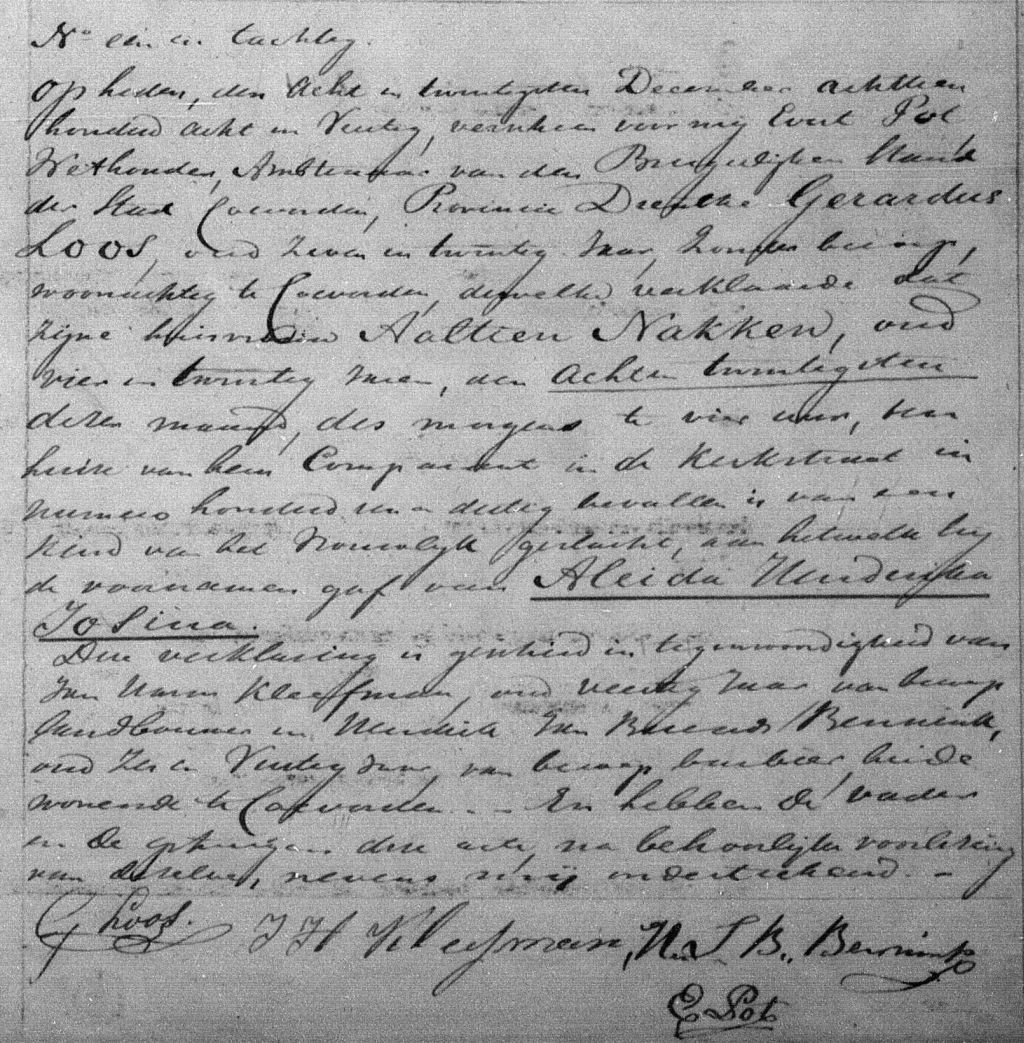 No een en tachtig.
Op heden, den Acht en twintigsten December achttien
honderd acht en Veertig, verscheen voor mij Evert Pot,
Wethouder, Ambtenaar van den Burgerlijken Stand
der Stad Coevorden, Provincie Drenthe Gerardus
Loos, oud Zeven en twintig Jaar, Zonder beroep,
woonachtig te Coevorden, dewelke verklaarde dat
zijne huisvrouw Aaltien Nakken, oud
vier en twintig Jaren, den Acht en twintigsten
dezer maand, des morgens te vier uur, ten
huise van hem Comparant in de Kerkstraat in
numero honderd en dertig bevallen is van een
Kind van het Vrouwelijk geslacht, aan hetwelk hij
de voornamen gaf van Aleida Hendrijka
Josina.
Deze verklaring is geschied in tegenwoordigheid van
Jan Harm Kleefman, oud veertig Jaar van beroep
landbouwer en Hendrik Jan Berends Bennink,
oud Zes en Veertig Jaar, van beroep barbier beide
wonende te Coevorden. - En hebben de vader
en de getuigen deze acte, na behoorlijke voorlezing
van dezelve, nevens mij onderteekend. -
G Loos. J H Kleefman, H. J. B. Bennink
E Pot